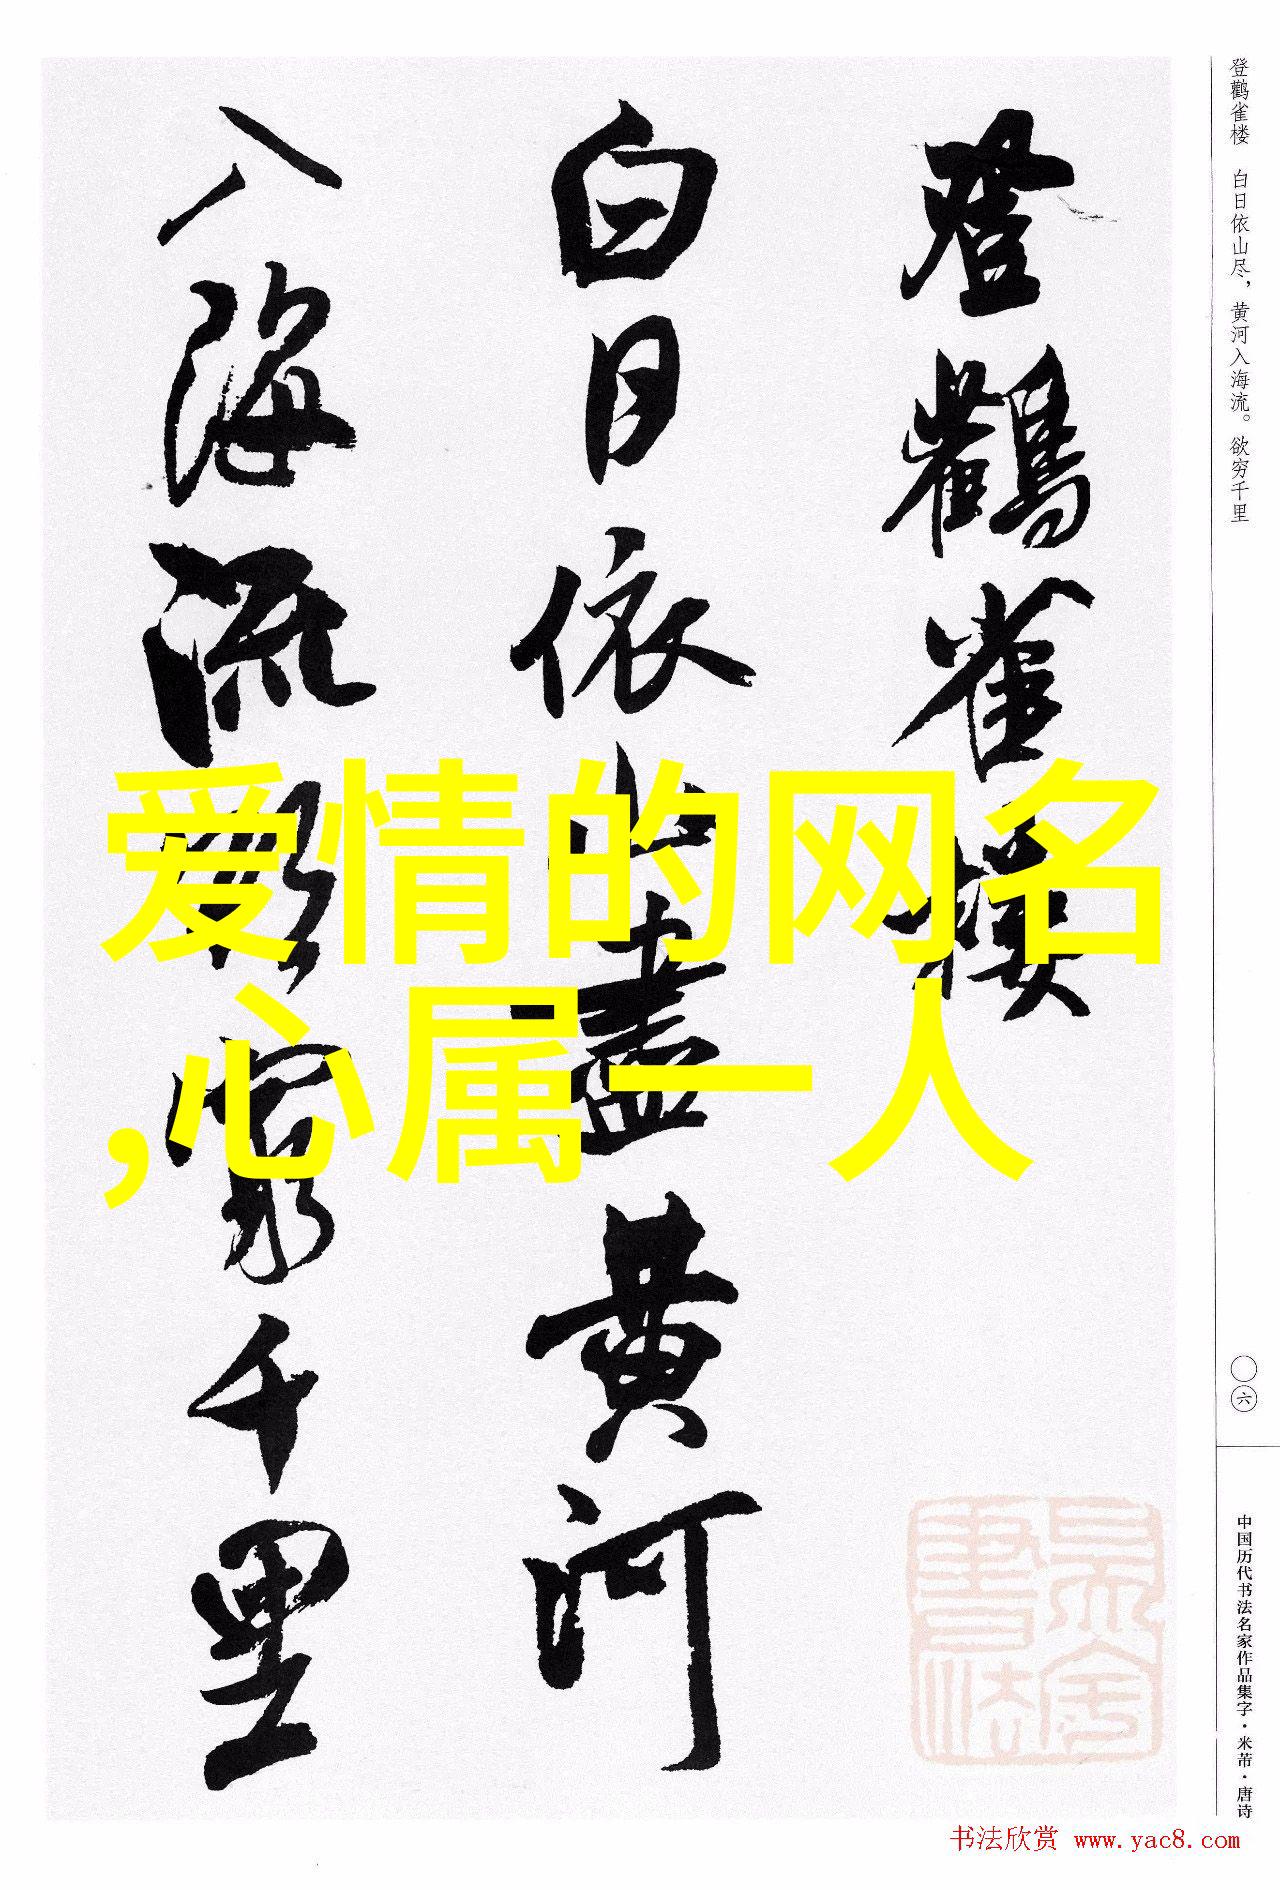 登鹳雀楼 白日依山尽，黄河入海流。欲穷千里
登鸛雀樓
白日依山盡黄河
入海流欲窮千里
爱情的网名
,心属一人
六
中国历代书法名家作品集字·米芾·唐诗
书法欣赏 www.yac8.com